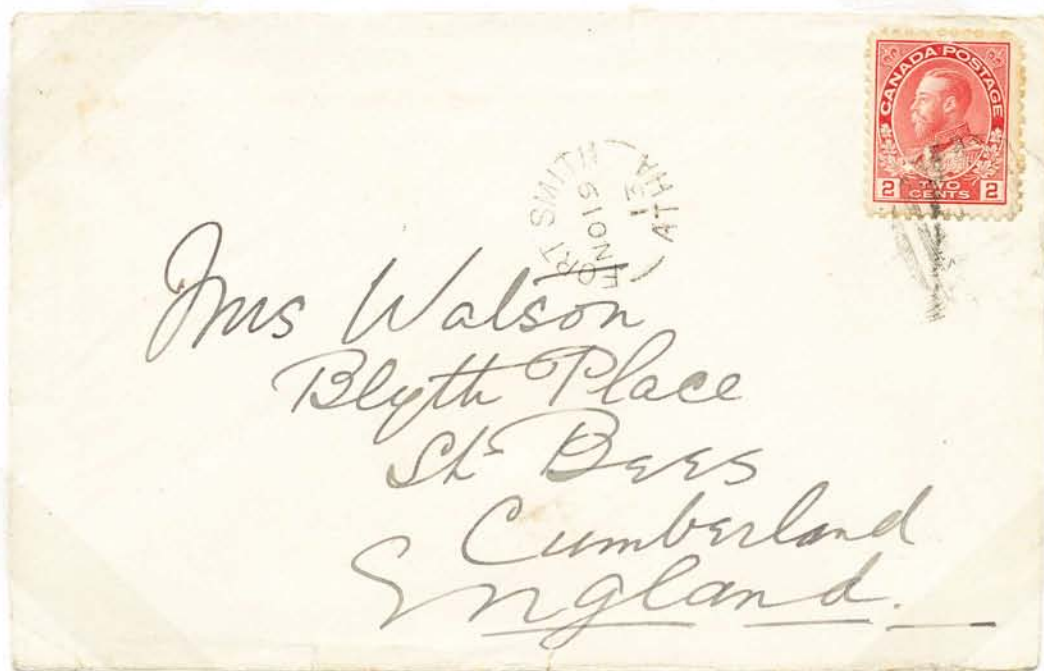 CANADA POSTAGE
2 TWO CENTS 2
FORT SMITH
NO 19
12
ATHA
Mrs Watson
Blyth Place
St Bees
Cumberland
England.